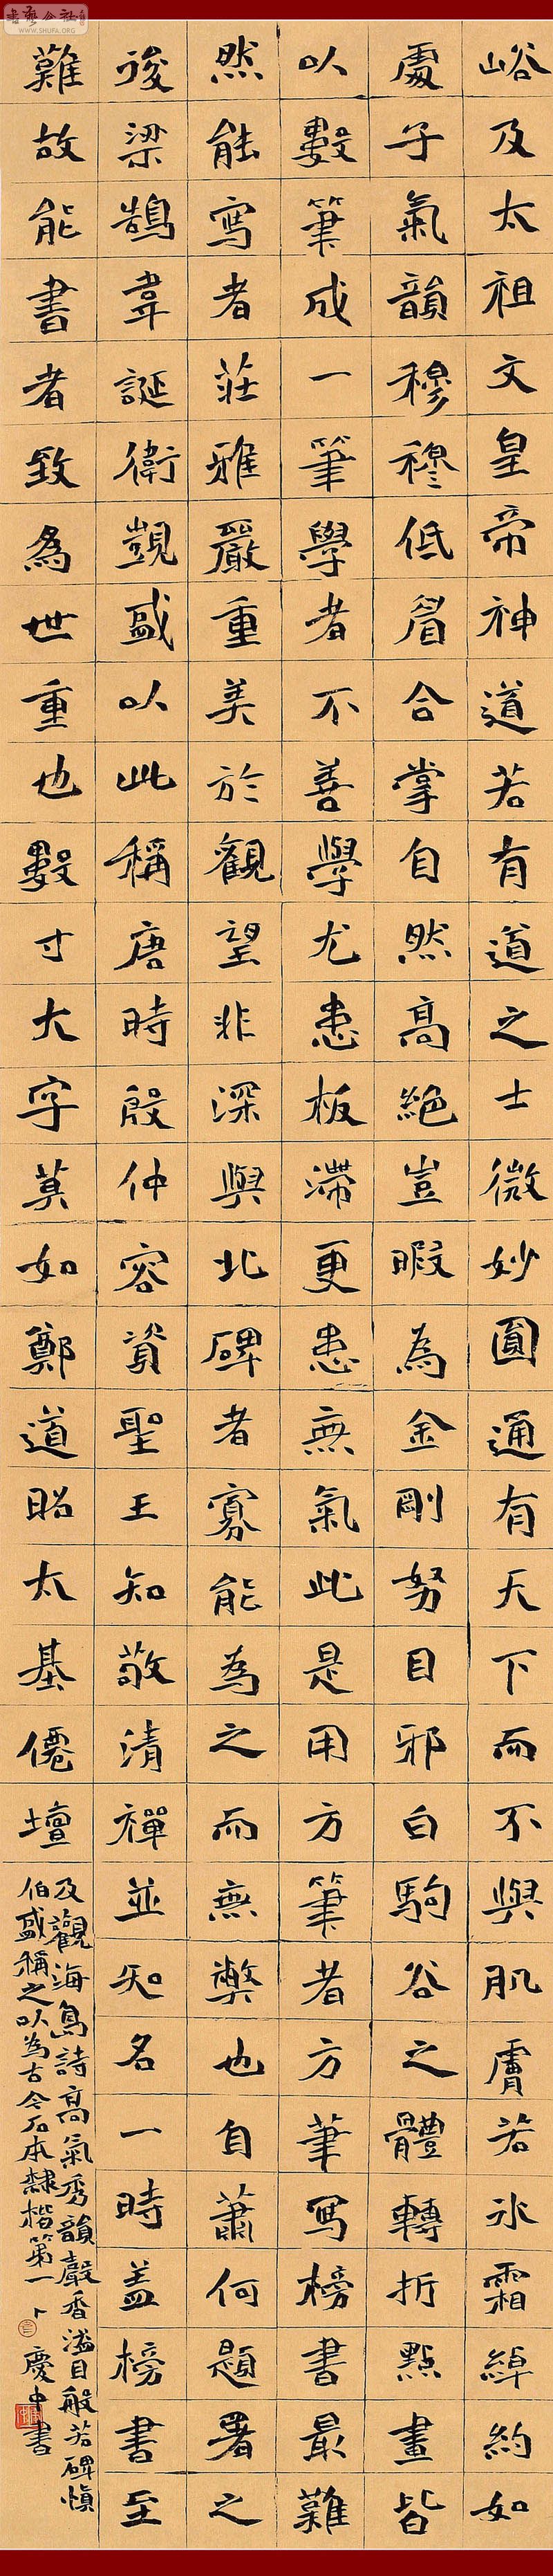 書藝公社
WWW.SHUFA.ORG
峪及太祖文皇帝神道若有道之士微妙圓通有天下而不與肌膚若冰霜綽約如
處子氣韻穆穆低眉合掌自然高絕豈暇為金剛努目邪白駒谷之體轉折點畫皆
以數筆成一筆學者不善學尤患板滯更患無氣此是用方筆者方筆寫榜書最難
然能寫者莊雅嚴重美於觀望非深與北碑者寡能為之而無獘也自蕭何題署之
後梁鵠韋誕衛覬盛以此稱唐時殷仲容資聖王知敬清禪並知名一時蓋榜書至
難故能書者致為世重也數寸大字莫如鄭道昭太基僊壇
及觀海島詩高氣秀韻馨香溢目般若碑慎
伯盛稱之以為古今石本隸楷第一 卜慶中書